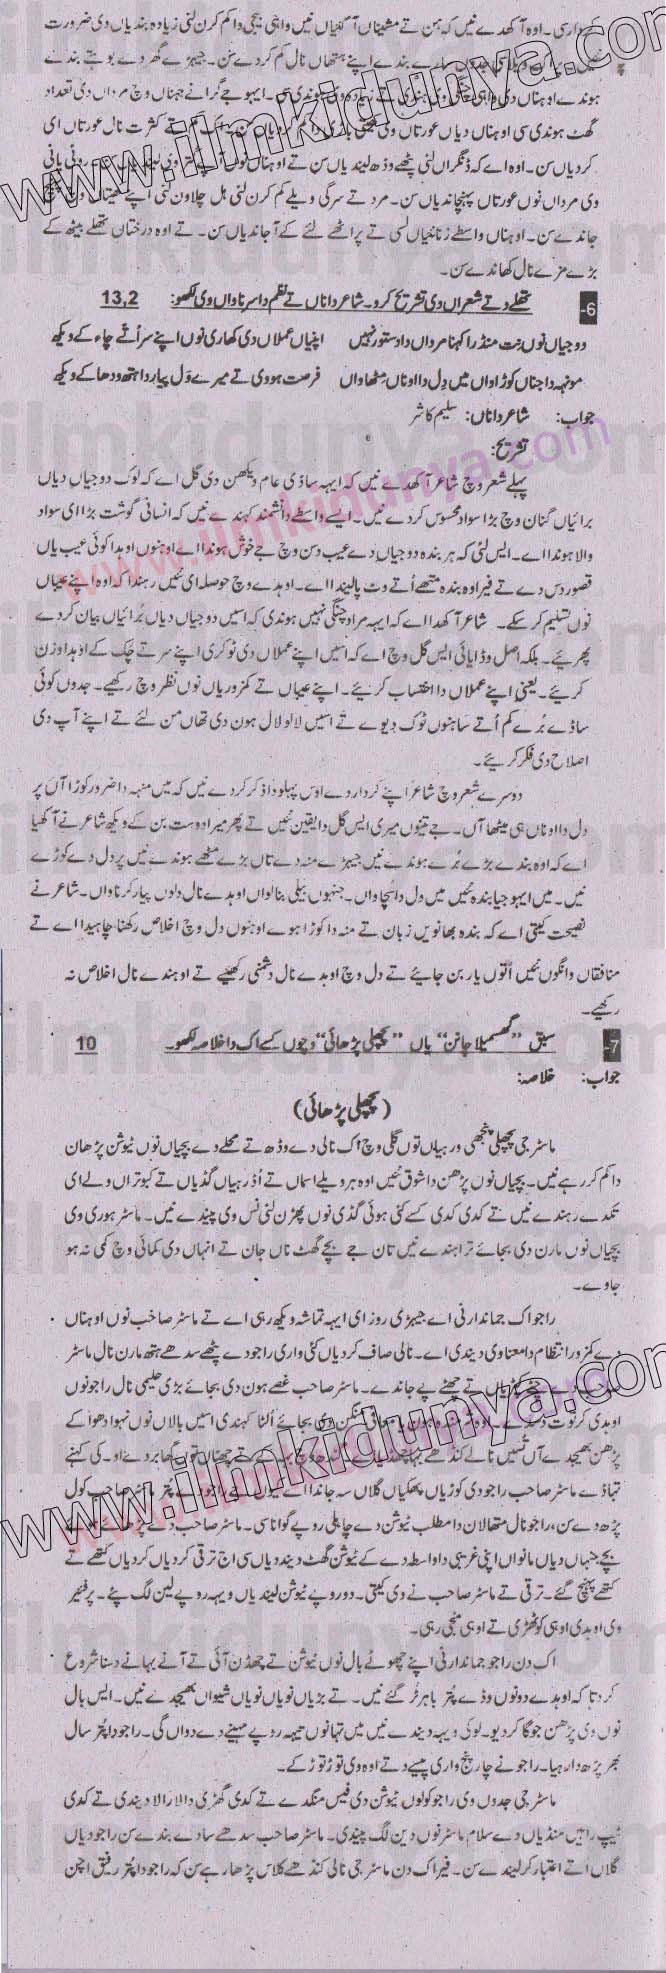 کردار سی۔ اوہ آکھدے نیں کہ ہن تے مشیناں آ گئیاں نیں واہی بیجی دا کم کرن لئی زیادہ بندیاں دی ضرورت
سارے بندے اپنے ہتھاں نال کم کردے سن۔ جیہڑے گھر دے بوہتے بندے
ہوندے اوہناں دی واہی چنگی وی ہوندی تے زیادہ وی ہوندی سی۔ ایہو جے گرانے جہناں وچ مرداں دی تعداد
گھٹ ہوندی سی اوہناں دیاں عورتاں وی کھیتی باڑی دا کم کردیاں سن۔ اک کم تے کثرت نال عورتاں ای
کردیاں سن۔ اوہ اے کہ ڈنگراں لئی پٹھے وڈھ لیندیاں سن تے اوہناں نوں روٹی پانی
وی مرداں نوں عورتاں پہنچاندیاں سن۔ مرد تے سرگی ویلے کم کرن لئی ہل چلاون لئی اپنے کھیتاں وچ پہنچ
جاندے سن۔ اوہناں واسطے زنانیاں لسی تے پراٹھے لئے کے آ جاندیاں سن۔ تے اوہ درختاں تھلے بیٹھ کے
بڑے مزے نال کھاندے سن۔
6- تھلے دتے شعراں دی تشریح کرو۔ شاعر دا ناں تے نظم دا سرناواں وی لکھو: 13,2
دوجیاں نوں نت منڈرا کہنا مرداں دا دستور نہیں اپنیاں عملاں دی کھاری نوں اپنے سر اُتے چاء کے ویکھ
مونہہ دا جناں کوڑاواں میں دِل دا اوناں مٹھاواں فرصت ہووی تے میرے وَل پیار دا ہتھ ودھا کے ویکھ
جواب: شاعر دا ناں: سلیم کاشر
تشریح:
پہلے شعر وچ شاعر آکھدے نیں کہ ایہہ ساڈی عام ویکھن دی گل اے کہ لوک دوجیاں دیاں
برائیاں گنان وچ بڑا سواد محسوس کردے نیں۔ ایسے واسطے دانشمند کہندے نیں کہ انسانی گوشت بڑا ای سواد
والا ہوندا اے۔ ایس لئی کہ ہر بندہ دوجیاں دے عیب دسن وچ جے خوش ہوندا اے اوہنوں اوہدا کوئی عیب یاں
قصور دس دے تے فیر اوہ بندہ متھے اُتے وٹ پا لیندا اے۔ اوہدے وچ حوصلہ ای نئیں رہندا کہ اوہ اپنے عیباں
نوں تسلیم کر سکے۔ شاعر آکھدا اے کہ ایہہ مراد چنگی نہیں ہوندی کہ اسیں دوجیاں دیاں بُرائیاں بیان کردے
پھریئے۔ بلکہ اصل وڈیائی ایس گل وچ اے کہ اسیں اپنے عملاں دی ٹوکری اپنے سر تے چک کے اوہدا وزن
کریئے۔ یعنی اپنے عملاں دا احتساب کریئے۔ اپنے عیباں تے کمزوریاں نوں نظر وچ رکھیے۔ جدوں کوئی
ساڈے بُرے کم اُتے سانہنوں ٹوک دیوے تے اسیں لالو لال ہون دی تھاں من لئے تے اپنے آپ دی
اصلاح دی فکر کریئے۔
دوسرے شعر وچ شاعر اپنے کردار دے اوس پہلو دا ذکر کردے نیں کہ میں منہہ دا ضرور کوڑا آں پر
دل دا اوناں ہی میٹھا آں۔ جے تینوں میری ایس گل دا یقین نئیں تے پھر میرا دوست بن کے ویکھ شاعر نے آکھیا
اے کہ اوہ بندے بڑے بُرے ہوندے نیں جیہڑے منہ دے تاں بڑے مٹھے ہوندے نیں پر دل دے کوڑے
نیں۔ میں ایہو جیا بندہ نئیں میں دل دا سچا واں۔ جنہوں بیلی بنا لواں اوہدے نال دلوں پیار کرنا واں۔ شاعر نے
نصیحت کیتی اے کہ بندہ بھانویں زبان تے منہ دا کوڑا ہوے اوہنوں دل وچ اخلاص رکھنا چاہیدا اے تے
منافقاں وانگوں نئیں اُتوں یار بن جایئے تے دل وچ اوہدے نال دشمنی رکھیئے تے اوہندے نال اخلاص نہ
رکھیے۔
7- سبق ”گھسمیلا چانن“ یاں ”پچھلی پڑھائی“ وچوں کسے اک دا خلاصہ لکھو۔ 10
جواب: خلاصہ:
(پچھلی پڑھائی)
ماسٹر جی پچھلی پنجھی ورہیاں توں گلی وچ اک نالی دے وڈھ تے محلے دے بچیاں نوں ٹیوشن پڑھان
دا کم کر رہے نیں۔ بچیاں نوں پڑھن دا شوق نئیں اوہ ہر ویلے اسماں تے اُڈ رہیاں گڈیاں تے کبوتراں ولے ای
تکدے رہندے نیں تے کدی کدی کسے کٹی ہوئی گڈی نوں پھڑن لئی نس وی پیندے نیں۔ ماسٹر ہوری وی
بچیاں نوں مارن دی بجائے ترابندے نیں تان جے بچے گھٹ ناں جان تے انہاں دی کمائی وچ کمی نہ ہو
جاوے۔
راجو اک جماندارنی اے جیہڑی روز ای ایہہ تماشہ ویکھ رہی اے تے ماسٹر صاحب نوں اوہناں
دے کمزور انتظام دا معنا وی دیندی اے۔ نالی صاف کردیاں کئی واری راجو دے پٹھے سدھے ہتھ مارن نال ماسٹر
صاحب دے کپڑیاں تے چھٹے پے جاندے۔ ماسٹر صاحب غصے ہون دی بجائے بڑی حلیمی نال راجو نوں
اوہدی کرتوت دسدے۔ اوہ شرمندہ ہون یا معافی منگن دی بجائے اُلٹا کہندی اسیں بالاں نوں نہوا دھوا کے
پڑھن بھیجدے آں تسیں نالے کنڈھے بہا چھڈدے او۔
تہاڈے ماسٹر صاحب راجو دی کوڑیاں پھکیاں گلاں سہہ جاندا اے کیوں جے راجو دے پتر ماسٹر صاحب کول
پڑھدے سن، راجو نال متھا لان دا مطلب ٹیوشن دے چاہلی روپے گوانا سی۔ ماسٹر صاحب دے پڑھائے ہوئے
بچے جنہاں دیاں مانواں اپنی غریبی دا واسطہ دے کے ٹیوشن گھٹ دیندیاں سی اج ترقی کردیاں کردیاں کتھے تے
کتھے پہنچ گئے۔ ترقی تے ماسٹر صاحب نے وی کیتی۔ دو روپے ٹیوشن لیندیاں ویہہ روپے لین لگ پئے۔ پر فیر
وی اوہدی اوہی کوٹھڑی تے اوہی منجی رہی۔
اک دن راجو جماندارنی اپنے چھوٹے بال نوں ٹیوشن تے چھڈن آئی تے آنے بہانے دسنا شروع
کر دتا کہ اوہدے دونوں وڈے پتر باہر ٹُر گئے نیں۔ تے بڑیاں نویاں نویاں شیواں بھیجدے نیں۔ ایس بال
نوں وی پڑھن جوگا کر دیو۔ لوکی ویہہ دیندے نیں میں تہانوں تیہہ روپے مہینے دے دواں گی۔ راجو دا پتر سال
بھر پڑھدا رہیا۔ راجو نے چار پنج واری پیسے دتے اوہ وی توڑ توڑ کے۔
ماسٹر جی جدوں وی راجو کولوں ٹیوشن دی فیس منگدے تے کدی گھڑی دا لارا لا دیندی تے کدی
ٹیپ راہیں منڈیاں دے سلام ماسٹر نوں دین لگ پیندی۔ ماسٹر صاحب سدھے سادے بندے سن راجو دیاں
گلاں اُتے اعتبار کر لیندے سن۔ فیر اک دن ماسٹر جی نالی کنڈھے کلاس پڑھا رہے سن کہ راجو دا پتر رفیق اچن